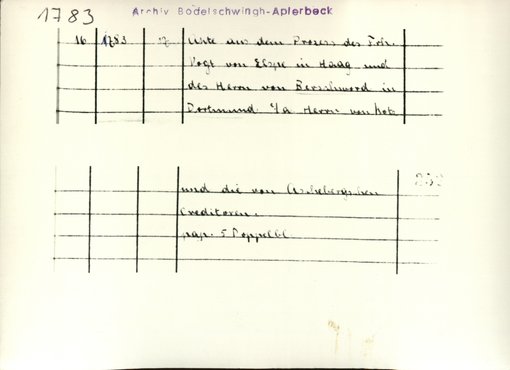 1783 Archiv Bodelschwingh-Aplerbeck
16 1783 Akte aus dem Prozess des Frhr.
Vogt von Elspe in Haag und
des Herrn von Berswword in
Dortmund C/a Herrn von
und die von Aschebergschen
Creditoren.
pap. 5 Doppelbl.